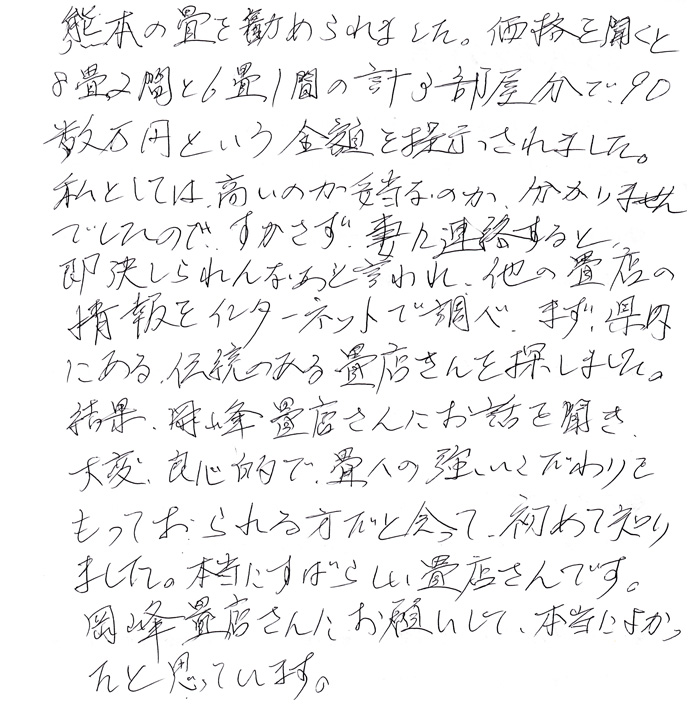 熊本の畳を勧められました。価格を聞くと
8畳2間と6畳1間の計3部屋分で、90
数万円という金額を提示されました。
私としては、高いのか妥当なのか、分かりません
でしたので、すかさず、妻に連絡すると、
即決しられんなあと言われ、他の畳店の
情報をインターネットで調べ、まず、県内
にある、伝統のある畳店さんを探しました。
結果、岡峰畳店さんにお話を聞き、
大変、良心的で、畳への強いこだわりを
もっておられる方だと会って、初めて知り
ました。本当にすばらしい畳店さんです。
岡峰畳店さんにお願いして、本当によかっ
たと思っています。